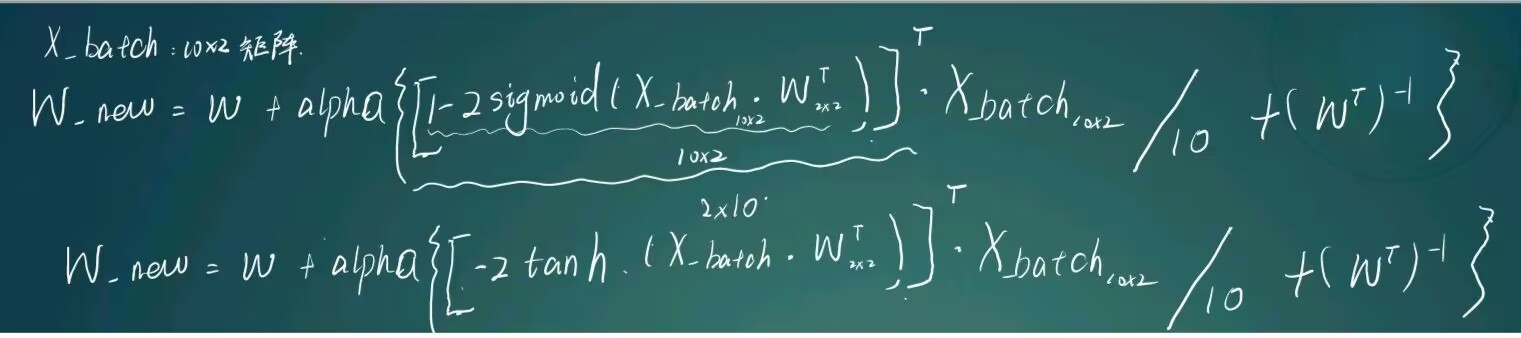 X_batch : 10x2 矩阵.
W_new = W + alpha{[1-2sigmoid(X_batch 10x2 · W^T 2x2)]^T · X_batch 10x2 / 10 + (W^T)^-1}
10x2
2x10
W_new = W + alpha{[-2tanh.(X_batch · W^T 2x2)]^T · X_batch 10x2 / 10 + (W^T)^-1}